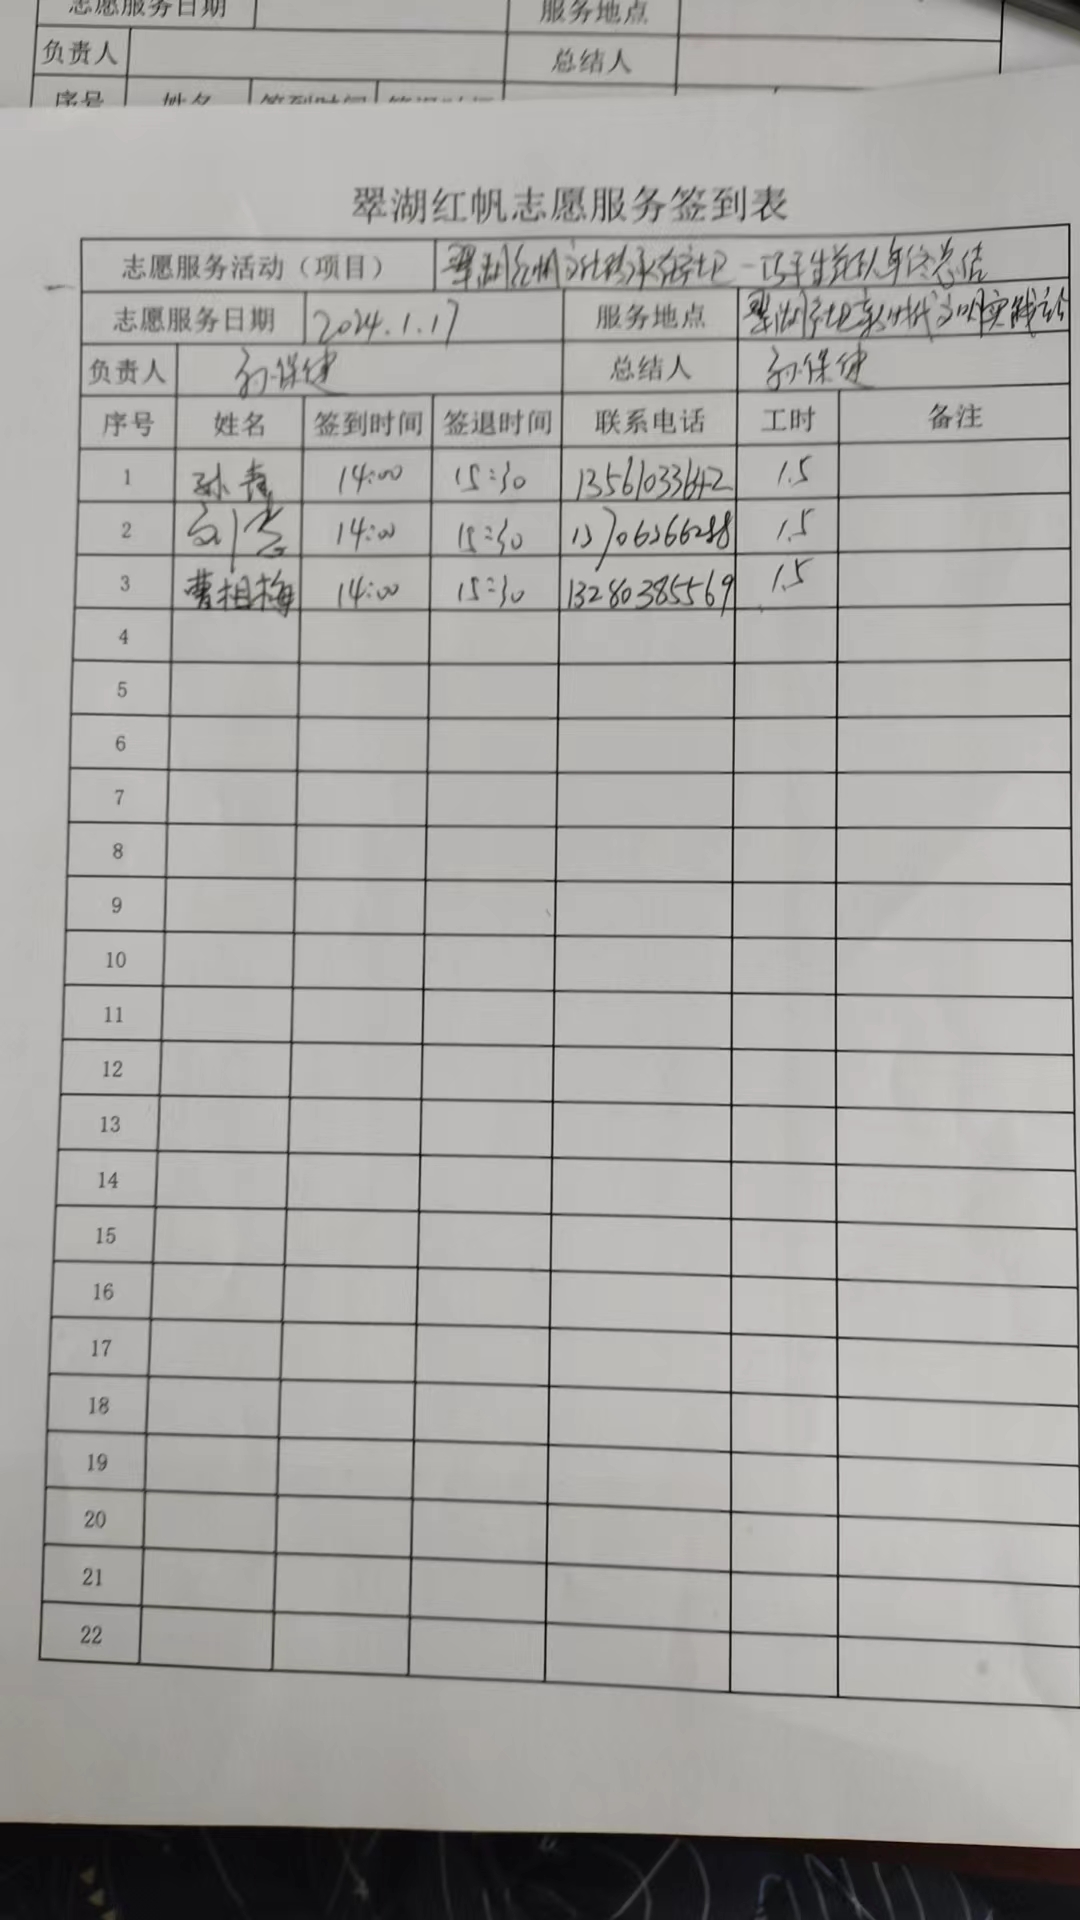 志愿服务日期 服务地点
负责人 总结人
序号 姓名 签到时间 签退时间
翠湖红帆志愿服务签到表
志愿服务活动（项目） 翠湖红帆 年终总结
志愿服务日期 2024.1.17 服务地点 翠湖社区新时代文明实践站
负责人 孙保健 总结人 孙保健
序号 姓名 签到时间 签退时间 联系电话 工时 备注
1 孙青 14:00 15:30 13561033642 1.5
2 14:00 15:30 13706366288 1.5
3 曹相梅 14:00 15:30 13280385569 1.5
4
5
6
7
8
9
10
11
12
13
14
15
16
17
18
19
20
21
22